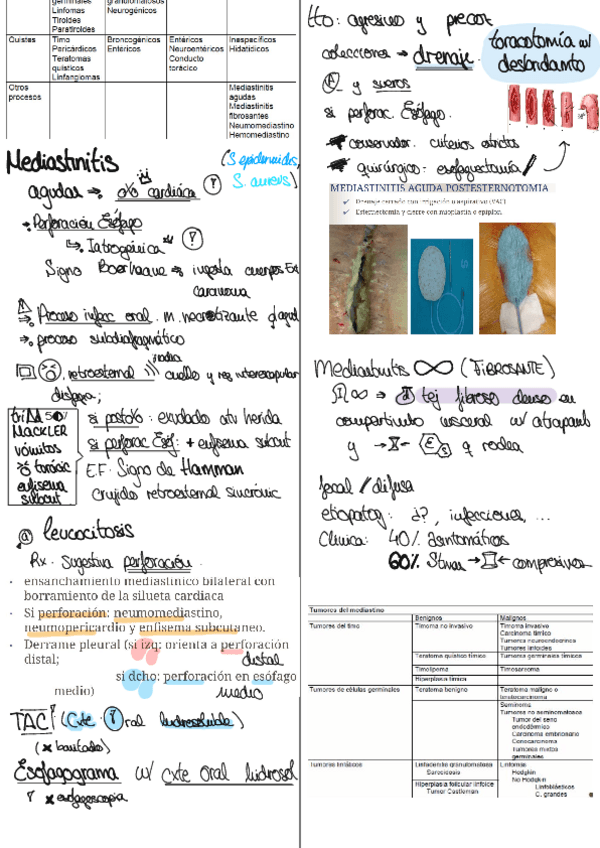 germinales
Linfomas
Tiroides
Paratiroides
granulomatosos
Neurogénicos
Quistes
Timo
Pericárdicos
Teratomas
quísticos
Linfangiomas
Broncogénicos
Entéricos
Entéricos
Neuroentéricos
Conducto
torácico
Inespecíficos
Hidatídicos
Otros
procesos
Mediastinitis
agudas
Mediastinitis
fibrosantes
Neumomediastino
Hemomediastino
Mediastinitis (S. epidermidis,
S. aureus)
agudas → cardiaca
→ Perforación Esófago
↳ Iatrogénica
→ ingesta cuerpos
→ Proceso infecc oral. m. necrotizante
→ proceso subdiafragmático
retroesternal cuello y reg interescapular
disfagia;
MACKLER
vómitos
torácic
enfisema
subcut
si postqx: exudado herida
si perforac Esóf: + enfisema subcut
E.F: Signo de Hamman
Crujido retroesternal sincrónic
leucocitosis
Rx. Sugestiva perforación.
ensanchamiento mediastínico bilateral con
borramiento de la silueta cardiaca
Si perforación: neumomediastino,
neumopericardio y enfisema subcutaneo.
Derrame pleural (si izq: orienta a perforación
distal; distal
si dcho: perforación en esófago
medio) medio
TAC (Cxte oral hidrosoluble)
(x baritado)
Esofagograma w/ cxte oral hidrosol
x esofagoscopia
tto: agresivo y precoz
colecciones → drenaje.
toracotomía w/
desbridamiento
y sueros
si perforac. Esófago.
conservador: criterios estrictos
quirúrgico: esofaguectomía
MEDIASTINITIS AGUDA POSTESTERNOTOMIA
Drenaje cerrado con irrigación o aspirativo (VAC)
Esternectomía y cierre con mioplastia o epiplon.
Mediastinitis ∞ (FIBROSANTE)
∞ → tej fibroso denso en
compartimento visceral w/ atrapamto
y q rodea
focal / difusa
etiopatog: ¿?, infecciones, ...
Clínica: 40% asintomáticos
60% compresivos
Tumores del mediastino
Benignos
Malignos
Tumores del timo
Timoma no invasivo
Timoma invasivo
Carcinoma tímico
Tumores neuroendocrinos
Tumores linfoides
Teratoma quístico tímico
Tumores germinales tímicos
Timolipoma
Timosarcoma
Hiperplasia tímica
Tumores de células germinales
Teratoma benigno
Teratoma maligno o
teratocarcinoma
Seminoma
Tumores no seminomatosos
Tumor del seno
endodérmico
Carcinoma embrionario
Coriocarcinoma
Tumores mixtos
germinales
Tumores linfáticos
Linfadenitis granulomatosa
Sarcoidosis
Linfomas
Hodgkin
No Hodgkin
Linfoblásticos
C. grandes
Hiperplasia folicular linfoide
Tumor Castleman